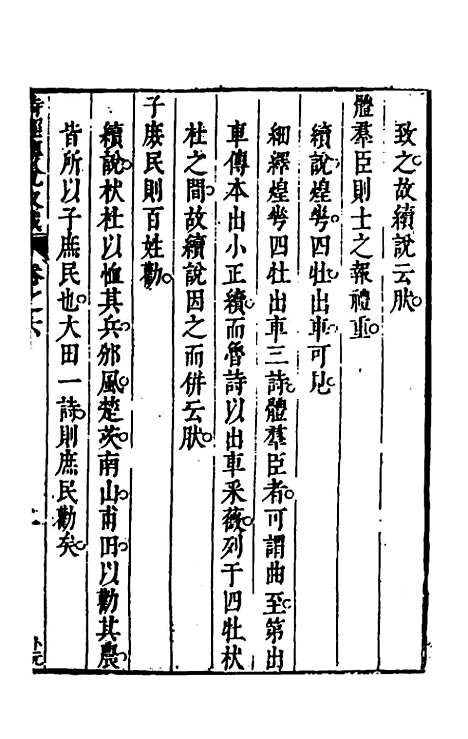 致之故續說云肰
體羣臣則士之報禮重
續說煌䓑四牡出車可見
細繹煌䓑四牡出車三詩體羣臣者可謂曲至第出
車傳本出小正續而魯詩以出車采薇列于四牡杕
杜之間故續說因之而併云肰
子庻民則百姓勸
續說杕杜以恤其兵邠風楚茨南山甫田以勸其農
皆所以子庻民也大田一詩則庻民勸矣